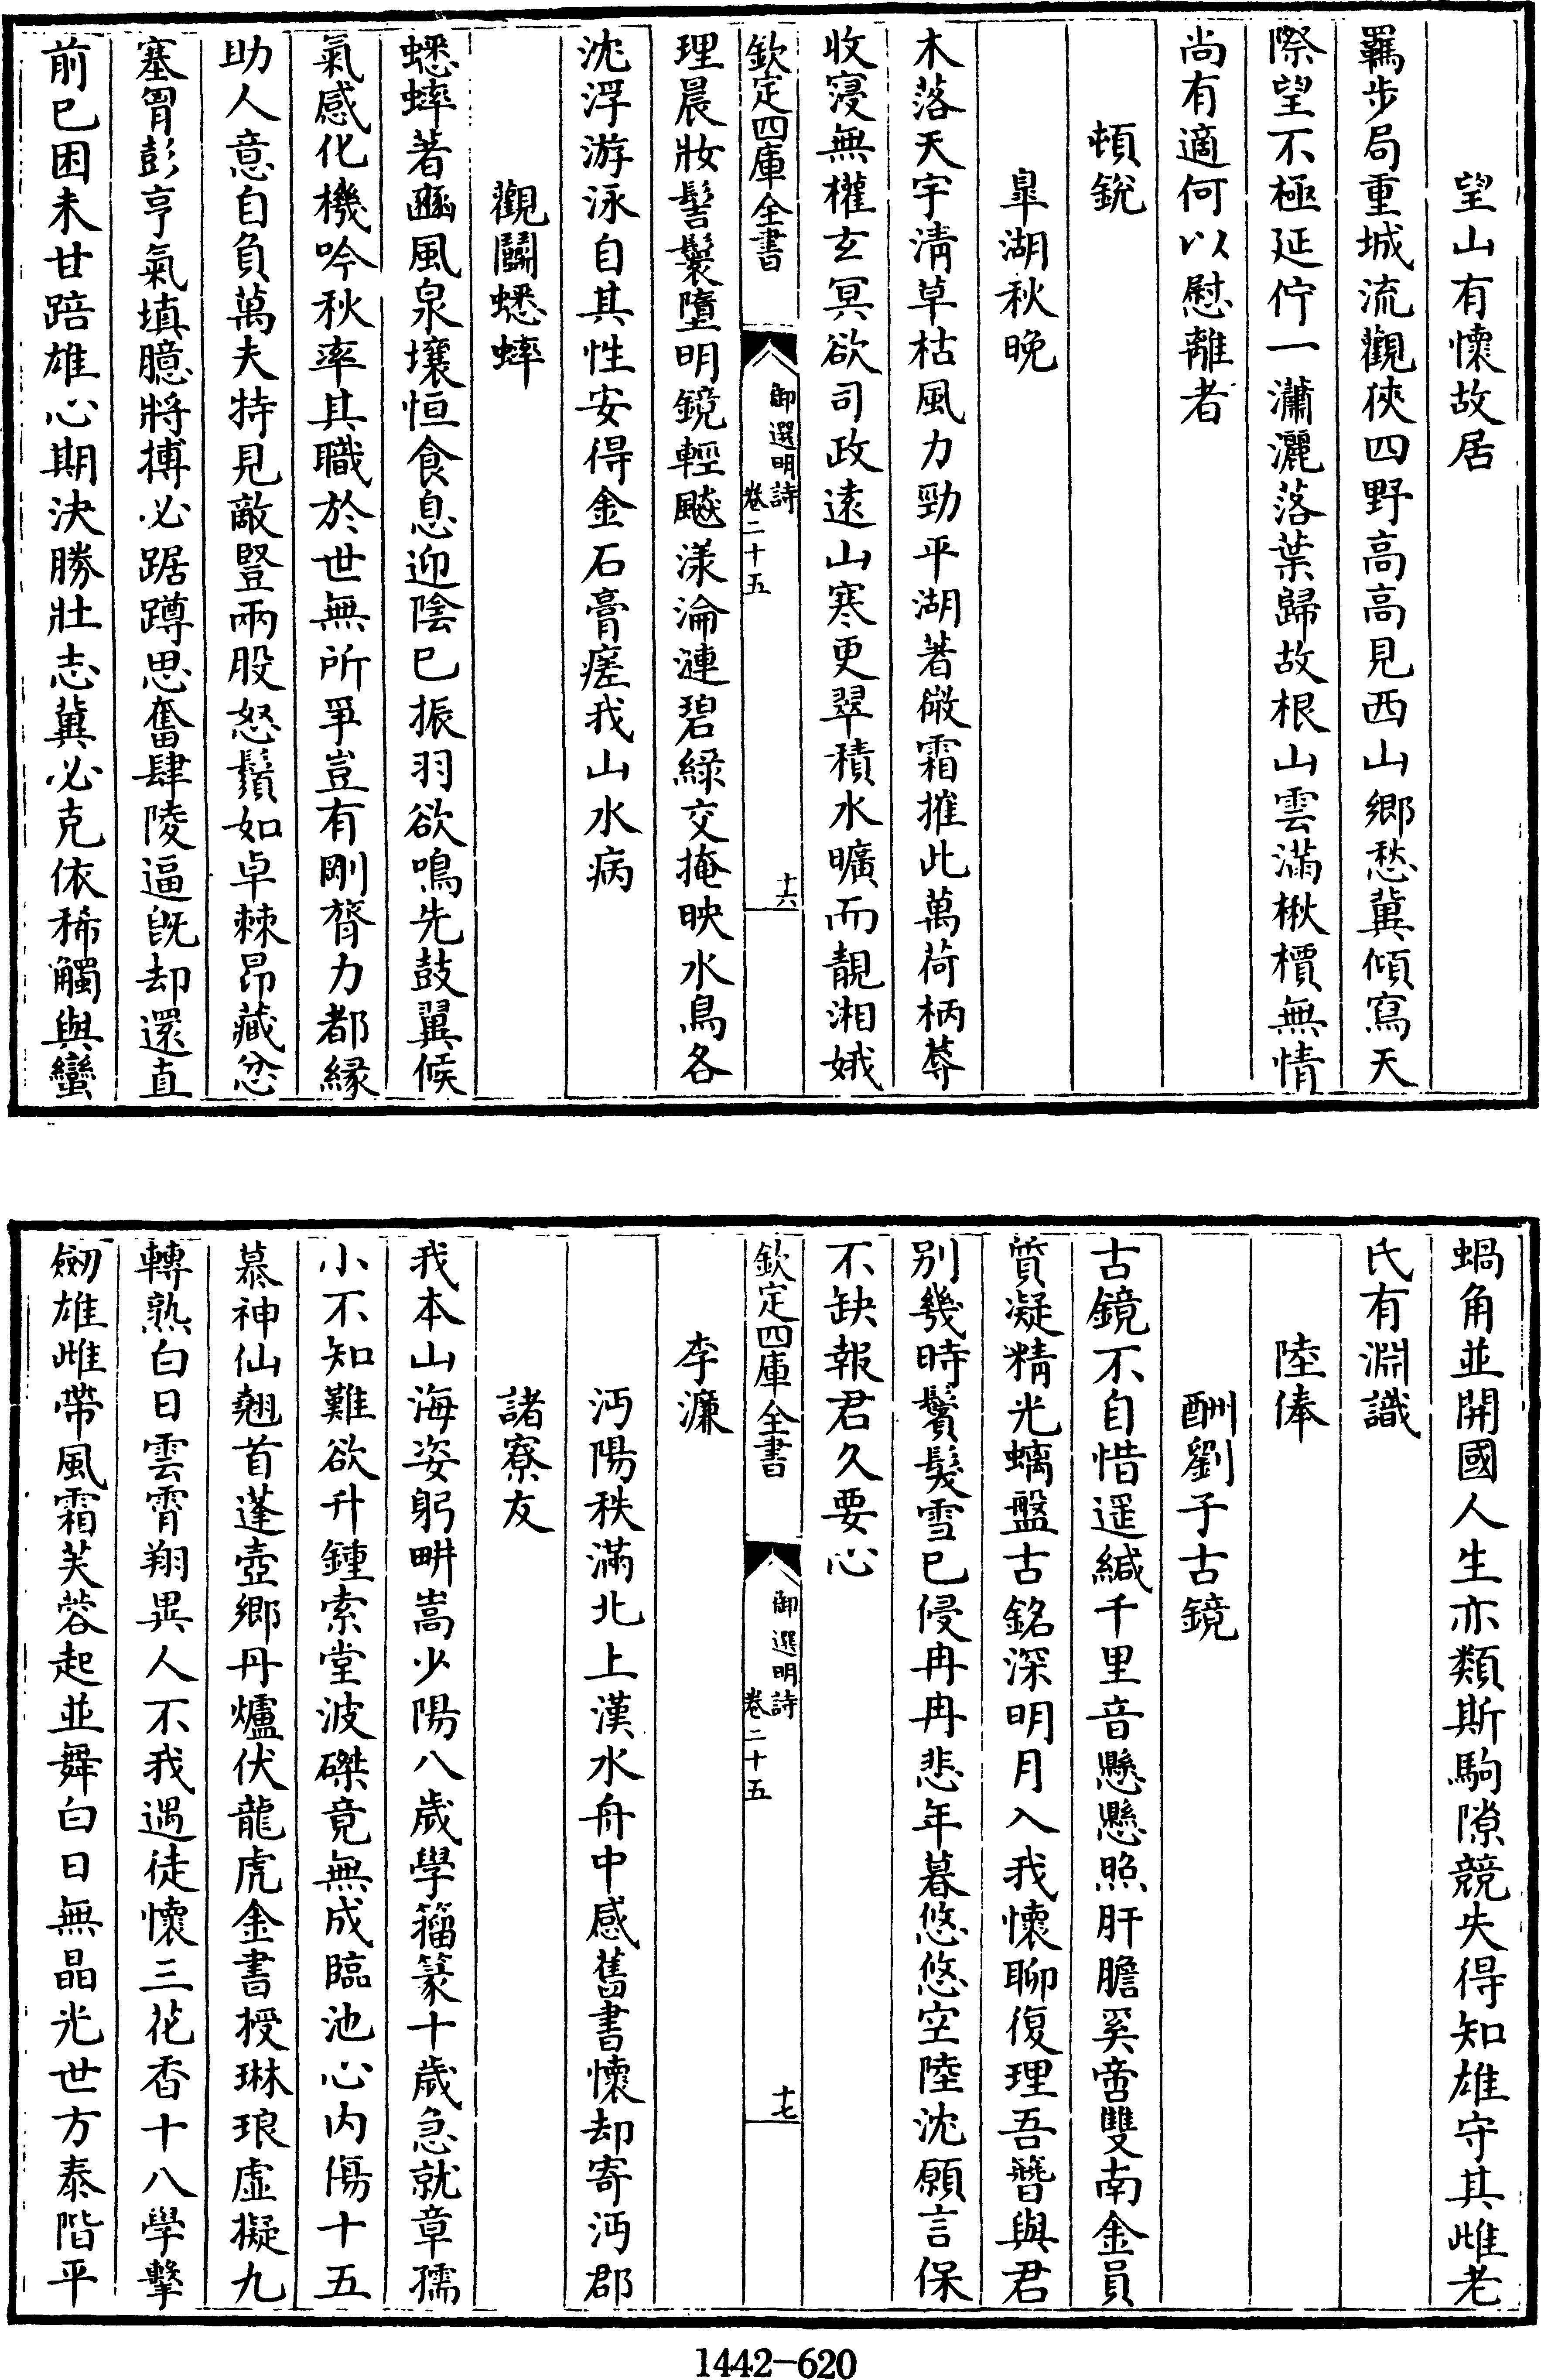 望山有懷故居
羈步局重城流觀狹四野高高見西山鄉愁冀傾寫天
際望不極延佇一瀟灑落葉歸故根山雲滿楸檟無情
尚有適何以慰離者
頓銳
臯湖秋晚
木落天宇清草枯風力勁平湖著微霜摧此萬荷柄蓐
收寖無權玄冥欲司政遠山寒更翠積水曠而靚湘娥
欽定四庫全書
御選明詩
卷二十五
十六
理晨妝髻鬟墮明鏡輕颸漾淪漣碧綠交掩映水鳥各
沈浮游泳自其性安得金石膏瘥我山水病
觀鬭蟋蟀
蟋蟀著豳風泉壤恒食息迎陰已振羽欲鳴先鼓翼候
氣感化機吟秋率其職於世無所爭豈有剛膂力都緣
助人意自負萬夫特見敵豎兩股怒鬚如卓棘昂藏忿
塞胷彭亨氣填臆將搏必踞蹲思奮肆陵逼旣却還直
前已困未甘踣雄心期決勝壯志冀必克依稀觸與蠻
蝸角並開國人生亦類斯駒隙競失得知雄守其雌老
氏有淵識
陸俸
酬劉子古鏡
古鏡不自惜遥緘千里音懸懸照肝膽奚啻雙南金員
質凝精光螭盤古銘深明月入我懷聊復理吾簪與君
别幾時鬢髮雪已侵冉冉悲年暮悠悠空陸沈願言保
不缺報君久要心
欽定四庫全書
御選明詩
卷二十五
十七
李濂
沔陽秩滿北上漢水舟中感舊書懷却寄沔郡
諸寮友
我本山海姿躬畊嵩少陽八歲學籀篆十歲急就章孺
小不知難欲升鍾索堂波磔竟無成臨池心内傷十五
慕神仙翹首蓬壺鄉丹爐伏龍虎金書授琳琅虛擬九
轉熟白日雲霄翔異人不我遇徒懷三花香十八學擊
劒雄雌帶風霜芙蓉起並舞白日無晶光世方泰階平
1442—620